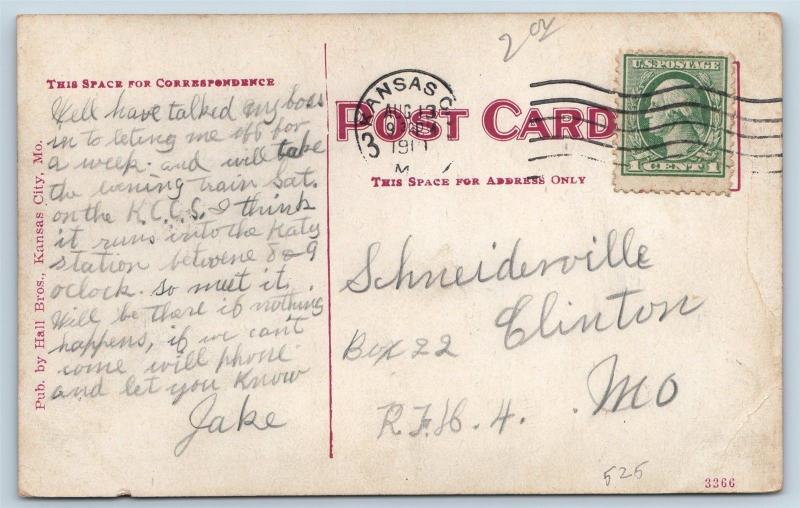 THIS SPACE FOR CORRESPONDENCE
Well have talked my boss
in to leting me off for
a week. and will take
the evening train Sat.
on the K.C.C.S. I think
it runs into the Katy
station betwene 8 & 9
oclock. so meet it.
Will be there if nothing
happens, if we can't
come will phone
and let you know
Jake
Pub. by Hall Bros., Kansas City, Mo.
20¢
KANSAS C
AUG 13
9
191
M
3
U.S. POSTAGE
1 CENT 1
POST CARD
THIS SPACE FOR ADDRESS ONLY
Schneiderville
Clinton
Box 22
Mo
R.F.D. 4.
525
3366